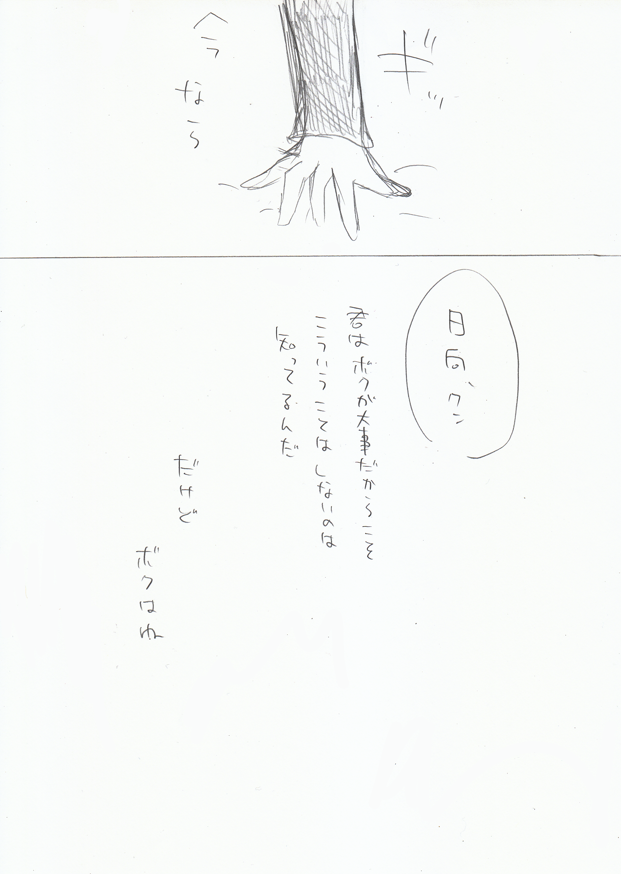 ギッ
今なら
日向クン
君はボクが大事だからこそ
こういうことはしないのは
知ってるんだ
だけど
ボクはね